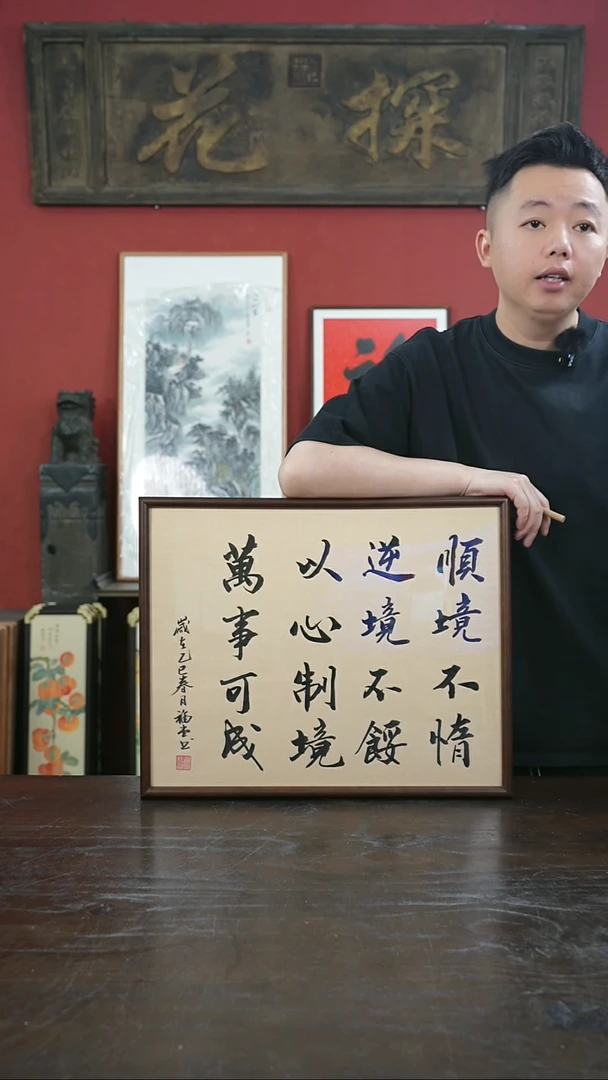 探花
順境不惰
逆境不餒
以心制境
萬事可成
歲在乙巳春月福堂書